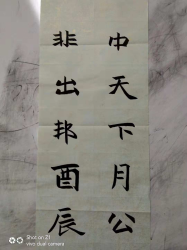 中天下月公
非出邦酉辰
Shot on Z1
vivo dual camera